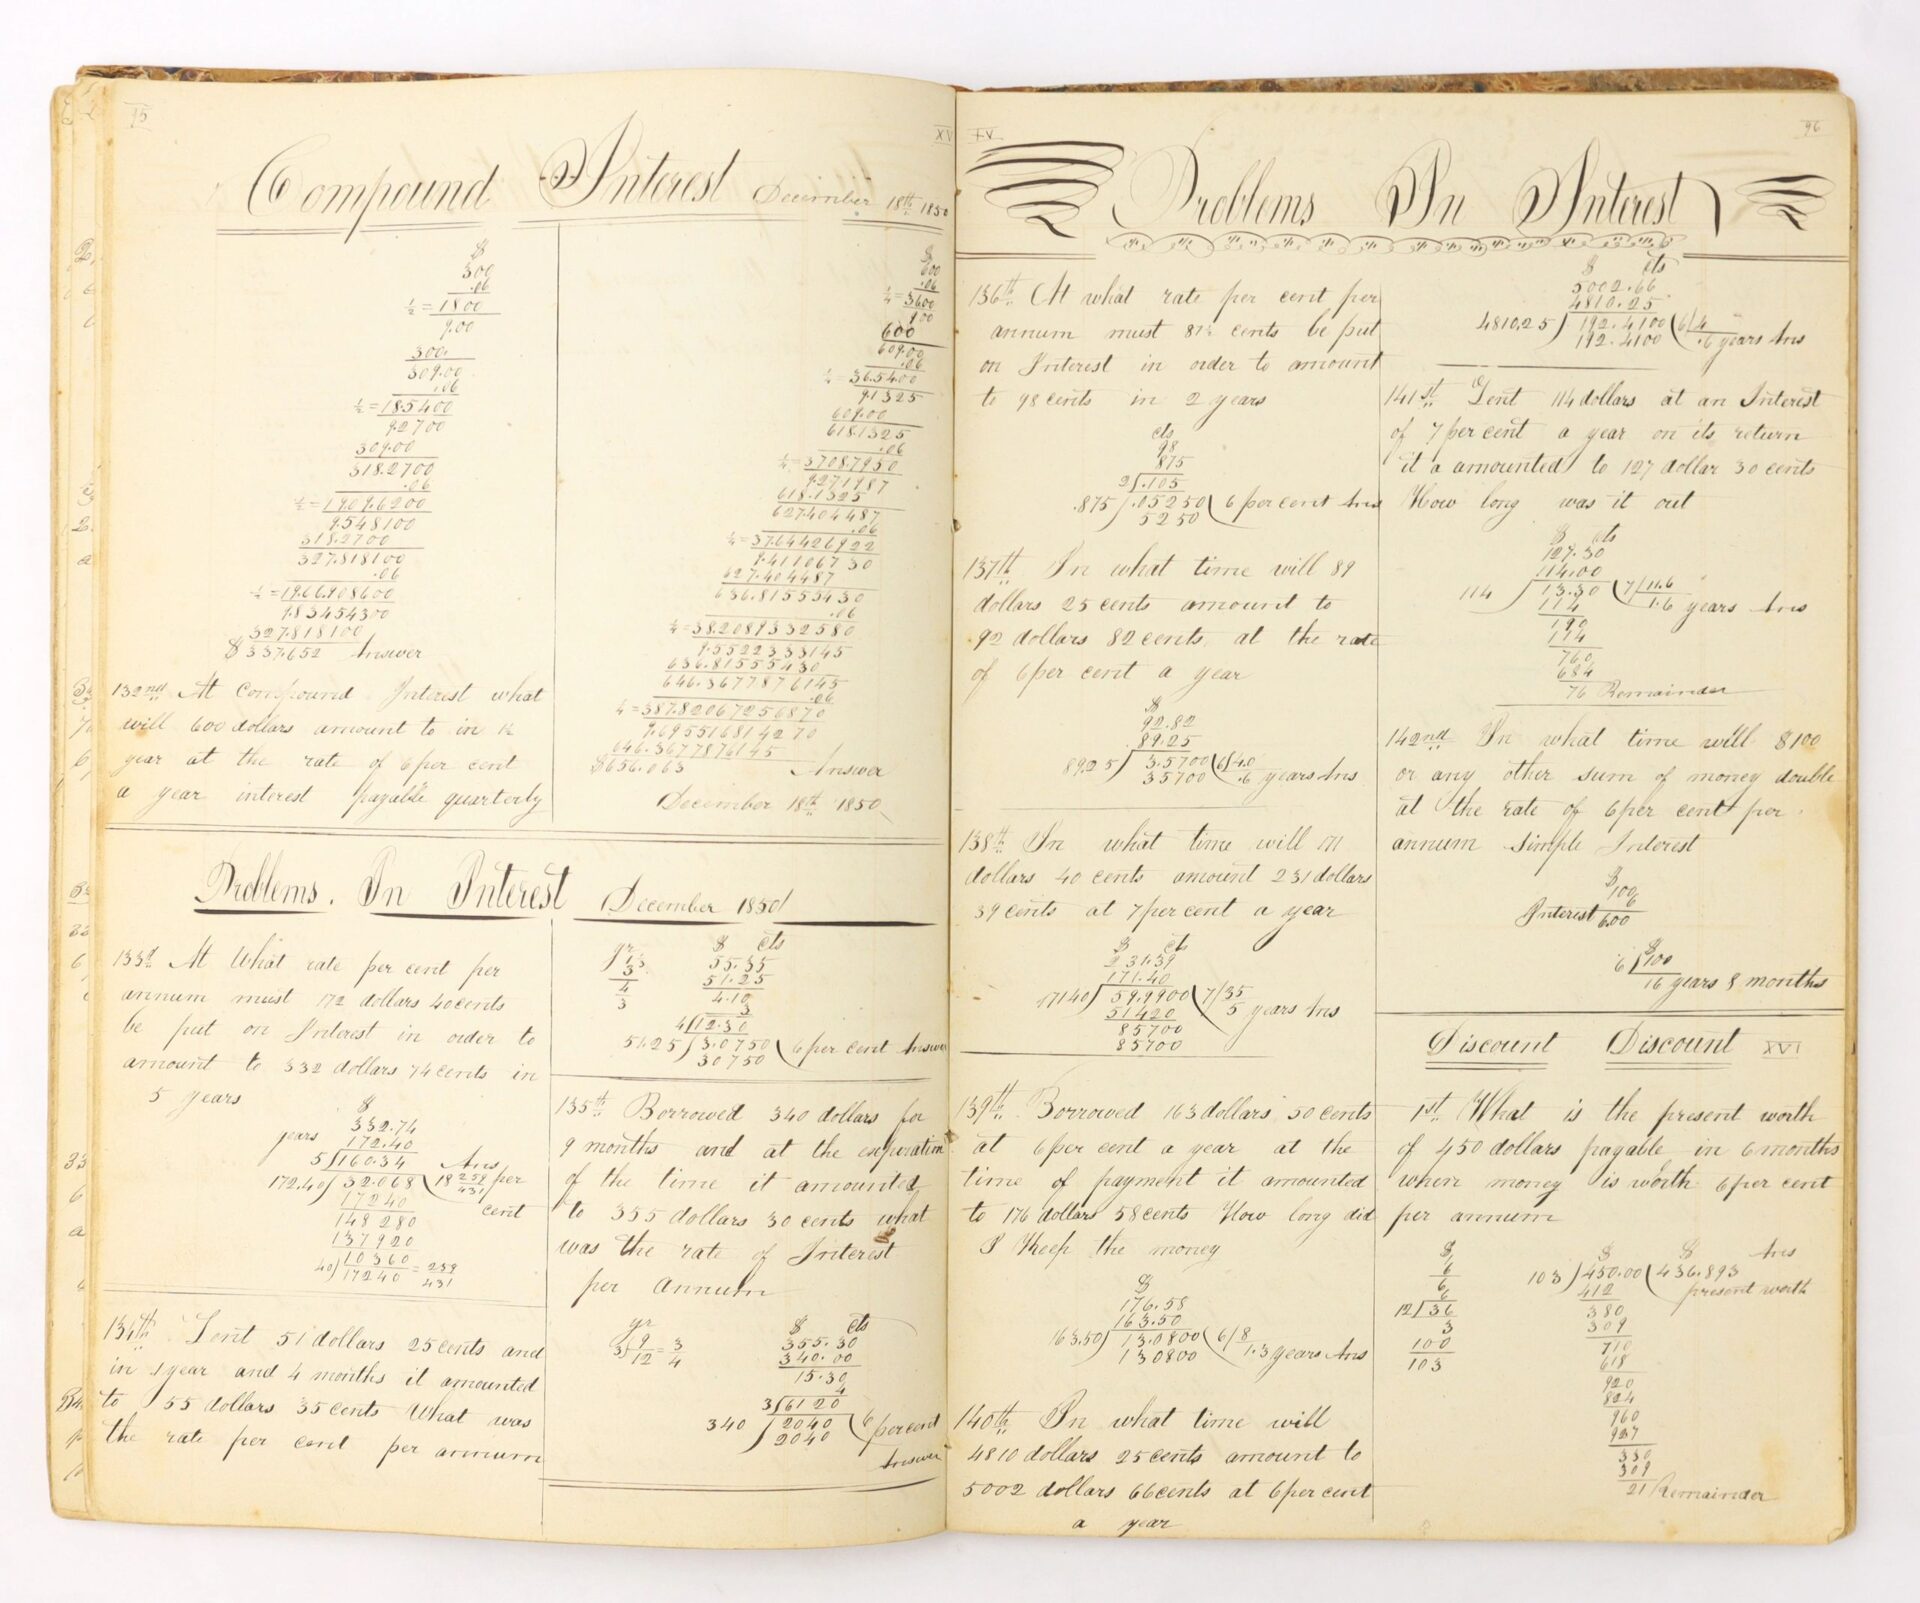 95
XV
Compound Interest December 18th 1850
$
300
.06
½ = 1800
9.00
300.
309.00
.06
½ = 18.5400
9.2700
309.00
318.2700
.06
½ = 19.09.6200
9.548100
318.2700
327.818100
.06
½ = 19.66.908600
9.83454300
327.818100
$ 337.652 Answer
132nd At Compound Interest what
will 600 dollars amount to in 1½
year at the rate of 6 per cent
a year interest payable quarterly
$
600
.06
¼ = 3600
9.00
600
609.00
.06
¼ = 36.5400
9.1325
609.00
618.1325
.06
¼ = 37087950
9.271987
618.1325
627.404487
.06
¼ = 37.64426922
9.41106730
627.404487
636.81555430
.06
¼ = 38.2089332580
9.5522333145
636.81555430
646.3677876145
.06
¼ = 387.82067256870
9.695516814270
646.3677876145
$656.063 Answer
December 18th 1850
Problems. In Interest December 1850
133d At What rate per cent per
annum must 172 dollars 40 cents
be put on Interest in order to
amount to 332 dollars 74 cents in
5 years
$
332.74
years 172.40
5 160.34 Ans
172.40 32.068 18 259/431 per
17240 cent
148280
137920
40 10360 = 259
17240 431
134th Lent 51 dollars 25 cents and
in 1 year and 4 months it amounted
to 55 dollars 35 cents What was
the rate per cent per annum
yr $ cts
1⅓ 55.35
3
51.25
4 4.10
3 3
4 12.30
51.25 3.0750 6 per cent Answer
30750
135th Borrowed 340 dollars for
9 months and at the expiration
of the time it amounted
to 355 dollars 30 cents what
was the rate of Interest
per annum
yr $ cts
3 9/12 = 3/4 355.30
340.00
15.30
4
3 61 20
340 2040 6 per cent
2040
Answer
XV
96
Problems In Interest
136th At what rate per cent per
annum must 87½ cents be put
on Interest in order to amount
to 98 cents in 2 years
cts
98
875
2 .105
.875 .05250 6 per cent Ans
5250
137th In what time will 89
dollars 25 cents amount to
92 dollars 82 cents at the rate
of 6 per cent a year
$
92.82
89.25
8925 3.5700 6 4.0
35700 .6 years Ans
138th In what time will 171
dollars 40 cents amount 231 dollars
39 cents at 7 per cent a year
$ ct
231.39
171.40
17140 59.9900 7 35
51420 5 years Ans
85700
85700
139th Borrowed 163 dollars 50 cents
at 6 per cent a year at the
time of payment it amounted
to 176 dollars 58 cents How long did
I Keep the money
$
176.58
163.50
163.50 13.0800 6 8
130800 1.3 years Ans
140th In what time will
4810 dollars 25 cents amount to
5002 dollars 66 cents at 6 per cent
a year
$ cts
5002.66
4810.25
4810.25 192.4100 6 4
192.4100 .6 years Ans
141st Lent 114 dollars at an Interest
of 7 per cent a year on its return
it a amounted to 127 dollar 30 cents
How long was it out
$ cts
127.30
114.00
114 13.30 7 11.6
114 1.6 years Ans
190
114
760
684
76 Remainder
142nd In what time will $100
or any other sum of money double
at the rate of 6 per cent per
annum simple Interest
$
100
6
Interest 6.00
$
6 100
16 years 8 months
Discount Discount XVI
1st What is the present worth
of 450 dollars payable in 6 months
when money is worth 6 per cent
per annum
$
6
6
6
12 36
3
100
103
$ $ Ans
103 450.00 436.893
412 present worth
380
309
710
618
920
824
960
927
330
309
21 Remainder